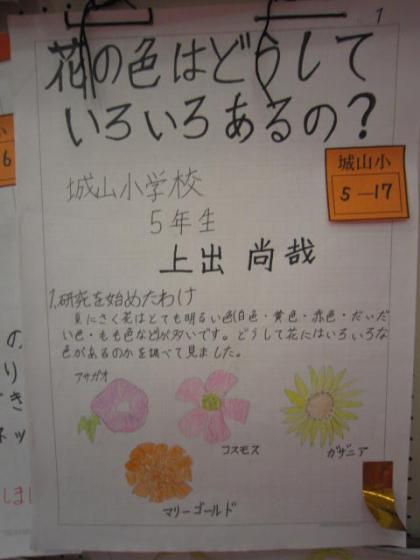 1
花の色はどうして
いろいろあるの?
城山小
5-17
城山小学校
5年生
上出 尚哉
1.研究を始めたわけ
見にさく花はとても明るい色(白色・黄色・赤色・だいだ
い色・もも色などが多いです。どうして花にはいろいろな
色があるのかを調べて見ました。
アサガオ
コスモス
ガザニア
マリーゴールド
小
6
の
り
き
ネッ
しまし